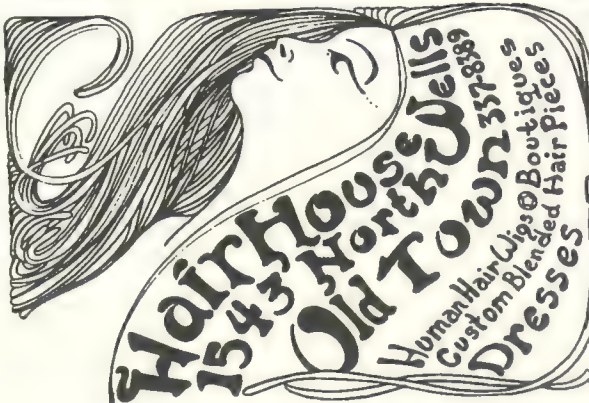 Hair House
1543 North Wells
Old Town 337-8389
Human Hair Wigs @ Boutiques
Custom Blended Hair Pieces
Dresses